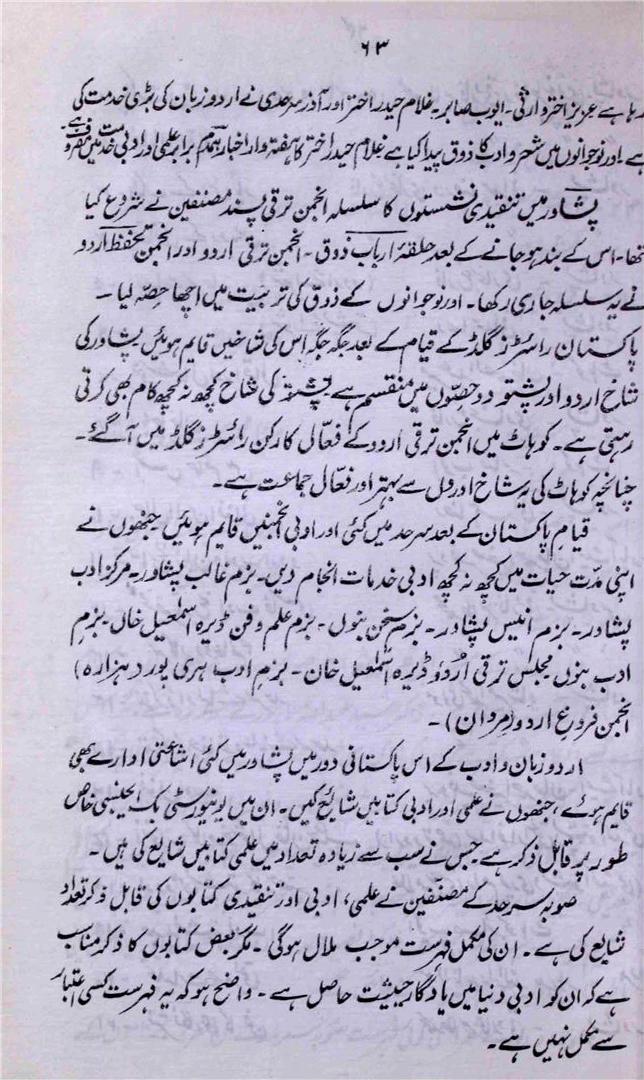 ۶۳
رہا ہے عزیز اختر وارثی۔ ایوب صابر یہ غلام حیدر اختر اور آذر سرحدی نے اردو زبان کی بڑی خدمت کی
ہے۔ اور نوجوانوں میں شعر و ادب کا ذوق پیدا کیا ہے غلام حیدر اختر کا ہفتہ وار اخبار ہمدم برابر علمی اور ادبی خدمت میں مصروف ہے
پشاور میں تنقیدی نشستوں کا سلسلہ انجمن ترقی پسند مصنفین نے شروع کیا
تھا۔ اس کے بند ہو جانے کے بعد حلقۂ ارباب ذوق۔ انجمن ترقی اردو اور انجمن تحفظ اردو
نے یہ سلسلہ جاری رکھا۔ اور نوجوانوں کے ذوق کی تربیت میں اچھا حصّہ لیا۔
پاکستان رائٹرز گلڈ کے قیام کے بعد جگہ جگہ اس کی شاخیں قایم ہوئیں پشاور کی
شاخ اردو اور پشتو دو حصّوں میں منقسم ہے پشتو کی شاخ کچھ نہ کچھ کام بھی کرتی
رہتی ہے۔ کوہاٹ میں انجمن ترقی اردو کے فعّال کارکن رائٹرز گلڈ میں آ گئے۔
چنانچہ کوہاٹ کی یہ شاخ اوروں سے بہتر اور فعّال جماعت ہے۔
قیام پاکستان کے بعد سرحد میں کئی اور ادبی انجمنیں قایم ہوئیں جنھوں نے
اپنی مدّت حیات میں کچھ نہ کچھ ادبی خدمات انجام دیں۔ بزم غالب پشاور۔ مرکز ادب
پشاور۔ بزم انیس پشاور۔ بزم سخن بنوں۔ بزم علم و فن ڈیرہ اسمٰعیل خاں۔ بزم
ادب بنوں مجلس ترقی اُردو ڈیرہ اسمٰعیل خان۔ بزم ادب ہری پور (ہزارہ)
انجمن فروغ اردو (مردان)۔
اردو زبان و ادب کے اس پاکستانی دور میں پشاور میں کئی اشاعتی ادارے بھی
قایم ہوئے، جنھوں نے علمی اور ادبی کتابیں شایع کیں۔ ان میں یونیورسٹی بک ایجنسی خاص
طور پر قابل ذکر ہے جس نے سب سے زیادہ تعداد میں علمی کتابیں شایع کی ہیں۔
صوبہ سرحد کے مصنّفین نے علمی، ادبی اور تنقیدی کتابوں کی قابل ذکر تعداد
شایع کی ہے۔ ان کی مکمل فہرست موجب ملال ہوگی۔ مگر بعض کتابوں کا ذکر مناسب
ہے کہ ان کو ادبی دنیا میں یادگار حیثیت حاصل ہے۔ واضح ہو کہ یہ فہرست کسی اعتبار
سے مکمل نہیں ہے۔